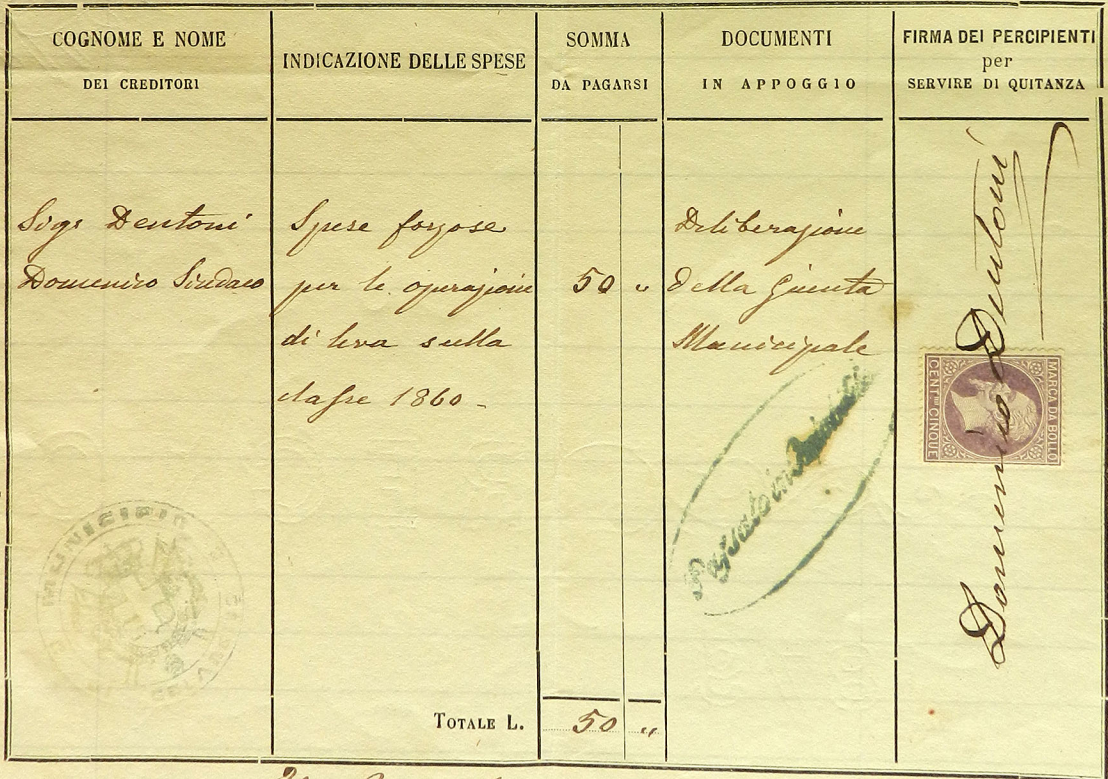 COGNOME E NOME
DEI CREDITORI
INDICAZIONE DELLE SPESE
SOMMA
DA PAGARSI
DOCUMENTI
IN APPOGGIO
FIRMA DEI PERCIPIENTI
per
SERVIRE DI QUITANZA
Sigr Dentoni
Domenico Sindaco
Spese forzose
per le operazioni
di leva sulla
classe 1860 -
50 "
Deliberazione
della Giunta
Municipale
Domenico Dentoni
MARCA DA BOLLO
CENT.MI CINQUE
Passato in
MUNICIPIO
TOTALE L.
50 "